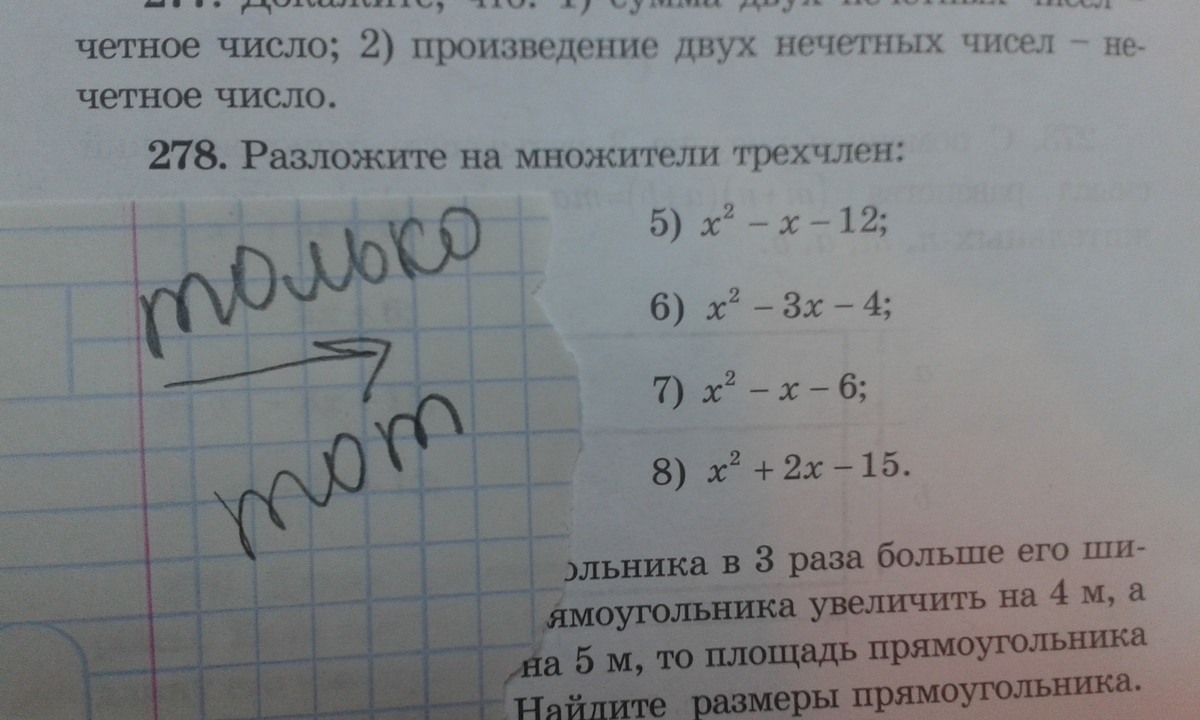 277. Докажите, что: 1) сумма двух нечетных чисел –
четное число; 2) произведение двух нечетных чисел – не-
четное число.
278. Разложите на множители трехчлен:
только
тот
5) x² – x – 12;
6) x² – 3x – 4;
7) x² – x – 6;
8) x² + 2x – 15.
ольника в 3 раза больше его ши-
ямоугольника увеличить на 4 м, а
на 5 м, то площадь прямоугольника
Найдите размеры прямоугольника.